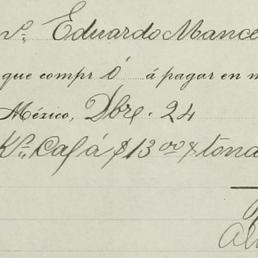 Vº Eduardo Mance
que compr ó á pagar en m
México, Dbre. 24
Kº Café á $13 00